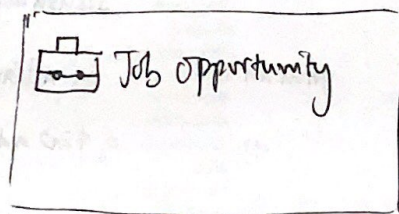 Job opportunity